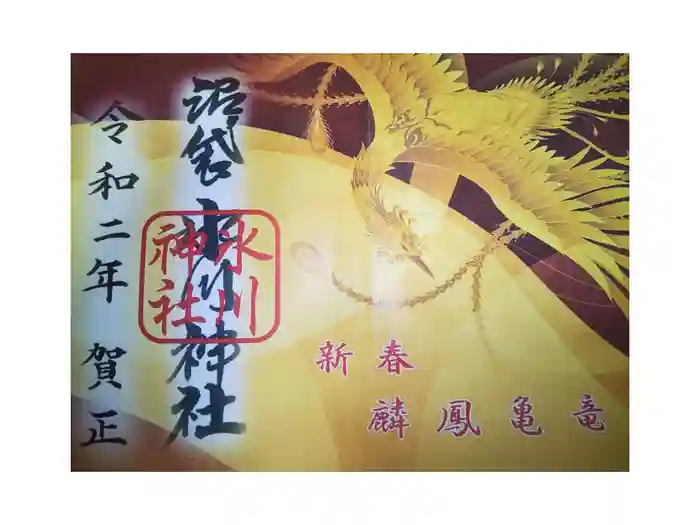 新春
麟鳳亀竜
沼袋氷川神社
氷川神社
令和二年 賀正